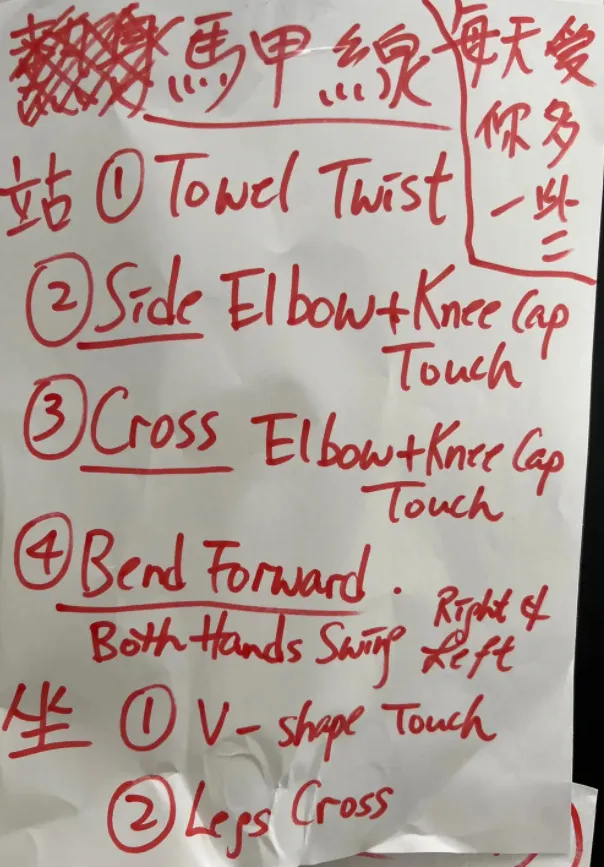 馬甲線
每天愛
你多
一些
站 ① Towel Twist
② Side Elbow+Knee Cap
Touch
③ Cross Elbow+Knee Cap
Touch
④ Bend Forward.
Both Hands Swing Right &
Left
坐 ① V-shape Touch
② Legs Cross